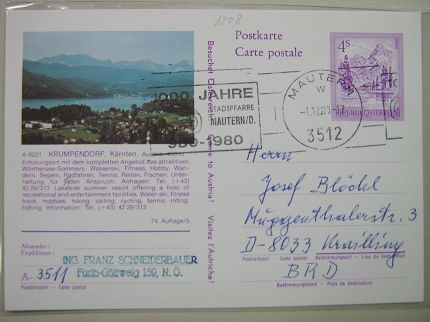 1208
Postkarte
Carte postale
4 S
REPUBLIK ÖSTERREICH
1000 JAHRE
STADTPFARRE
MAUTERN/D.
980-1980
MAUTERN
W
3512
Besucht Österreich!
Come to Austria!
Visitez l'Autriche!
A-9201 KRUMPENDORF, Kärnten, Austria
Erholungsort mit dem kompletten Angebot des attraktiven
Wörthersee-Sommers. Wasserski, Fitness, Hobby, Wan-
dern, Segeln, Radfahren, Tennis, Reiten, Fischen, Unter-
haltung für jeden Anspruch. Anfragen: Tel. (+43)
42 29/313 Lakeside summer resort offering a host of
recreational and entertainment facilities. Water-ski, fitness
track, hobbies, hiking, sailing, cycling, tennis, riding,
fishing. Information: Tel. (+43) 42 29/313.
74. Auflage/5
Herrn
Josef Blöchl
Muggenthalerstr. 3
D-8033 Krailling
Postleitzahl - Code postal Bestimmungsort - Lieu de destination
BRD
Bestimmungsland - Pays de destination
Absender:
Expéditeur:
ING. FRANZ SCHNEIDERBAUER
A-3511 Furth-Göttweig 159, N. Ö.
Postleitzahl - Code postal